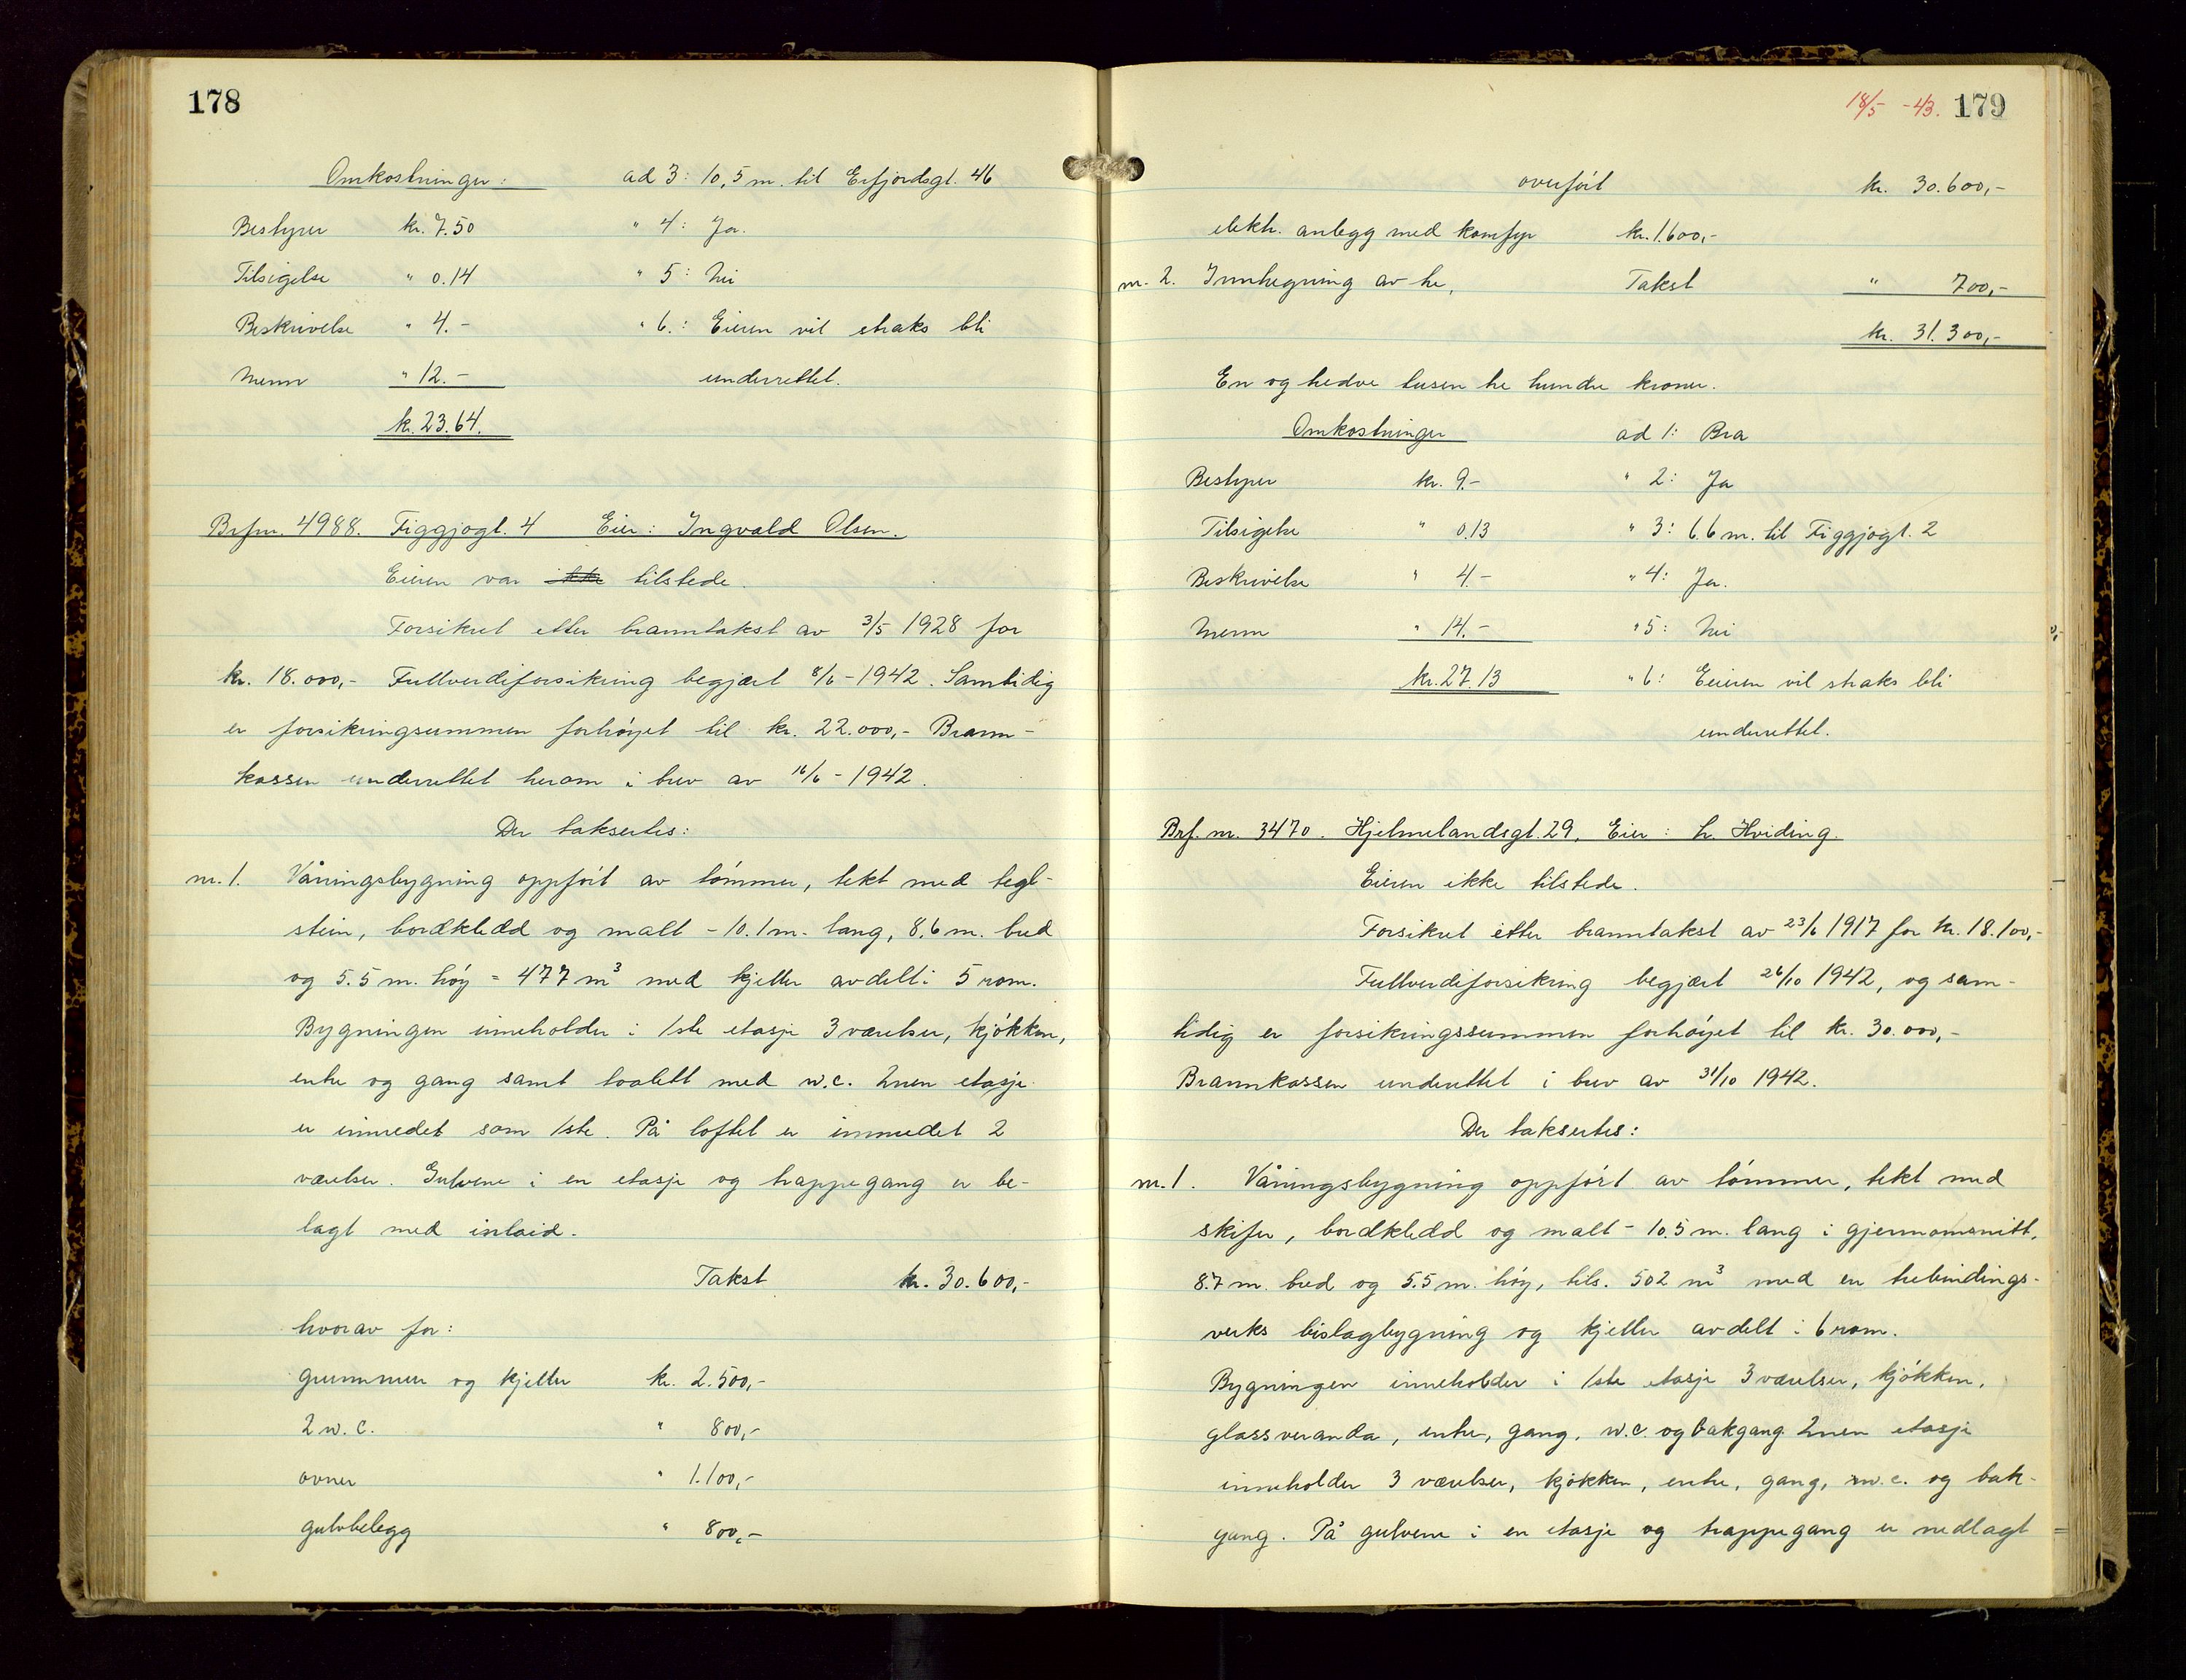 178
Omkostninger: ad 3: 10,5 m. til Erfjordsgt. 46
Bestyrer kr. 7.50 " 4: Ja.
Tilsigelse " 0.14 " 5: Nei
Beskrivelse " 4.- " 6.: Eieren vil straks bli
Menn " 12.- underrettet.
kr. 23.64.
Brfnr. 4988. Figgjogt. 4 Eier: Ingvald Olsen.
Eieren var ikke tilstede.
Forsikret etter branntakst av 3/5 1928 for
kr. 18.000,- Fullverdiforsikring begjært 8/6-1942. Samtidig
er forsikringsummen forhøyet til kr. 22.000,- Brann-
kassen underrettet herom i brev av 16/6-1942.
Der taksertes:
nr. 1. Våningsbygning oppført av tømmer, tekt med tegl-
stein, bordkledd og malt - 10.1 m. lang, 8.6 m. bred
og 5.5 m. høy = 477 m³ med kjeller avdelt i 5 rom.
Bygningen inneholder i 1ste etasje 3 værelser, kjøkken,
entre og gang samt toalett med w.c. 2nen etasje
er innredet som 1ste. På loftet er innredet 2
værelser. Gulvene i en etasje og trappegang er be-
lagt med inlaid.
Takst kr. 30.600,-
hvorav for:
grunnmur og kjeller kr. 2.500,-
2 w.c. " 800,-
ovner " 1.100,-
gulvbelegg " 800,-
18/5 -43. 179
overført kr. 30.600,-
elektr. anlegg med komfyr kr. 1.600,-
nr. 2. Innhegning av tre, Takst " 700,-
kr. 31.300,-
En og tredve tusen tre hundre kroner.
Omkostninger ad 1: Bra
Bestyrer kr. 9.- " 2: Ja
Tilsigelse " 0.13 " 3: 6.6 m. til Figgjogt. 2
Beskrivelse " 4.- " 4: Ja.
Menn " 14.- " 5: Nei
kr. 27.13 " 6: Eieren vil straks bli
underrettet.
Brf. nr. 3470. Hjelmelandsgt. 29, Eier: h. Hviding.
Eieren ikke tilstede.
Forsikret etter branntakst av 23/6 1917 for kr. 18.100,-
Fullverdiforsikring begjært 26/10 1942, og sam-
tidig er forsikringssummen forhøyet til kr. 30.000,-
Brannkassen underrettet i brev av 31/10 1942.
Der taksertes:
nr. 1. Våningsbygning oppført av tømmer, tekt med
skifer, bordkledd og malt - 10.5 m. lang i gjennomsnitt,
8.7 m. bred og 5.5 m. høy, tils. 502 m³ med en trebindings-
verks bislagbygning og kjeller avdelt i 6 rom.
Bygningen inneholder i 1ste etasje 3 værelser, kjøkken,
glassveranda, entre, gang, w.c. og bakgang. 2nen etasje
inneholder 3 værelser, kjøkken, entre, gang, w.c. og bak-
gang. På gulvene i en etasje og trappegang er nedlagt